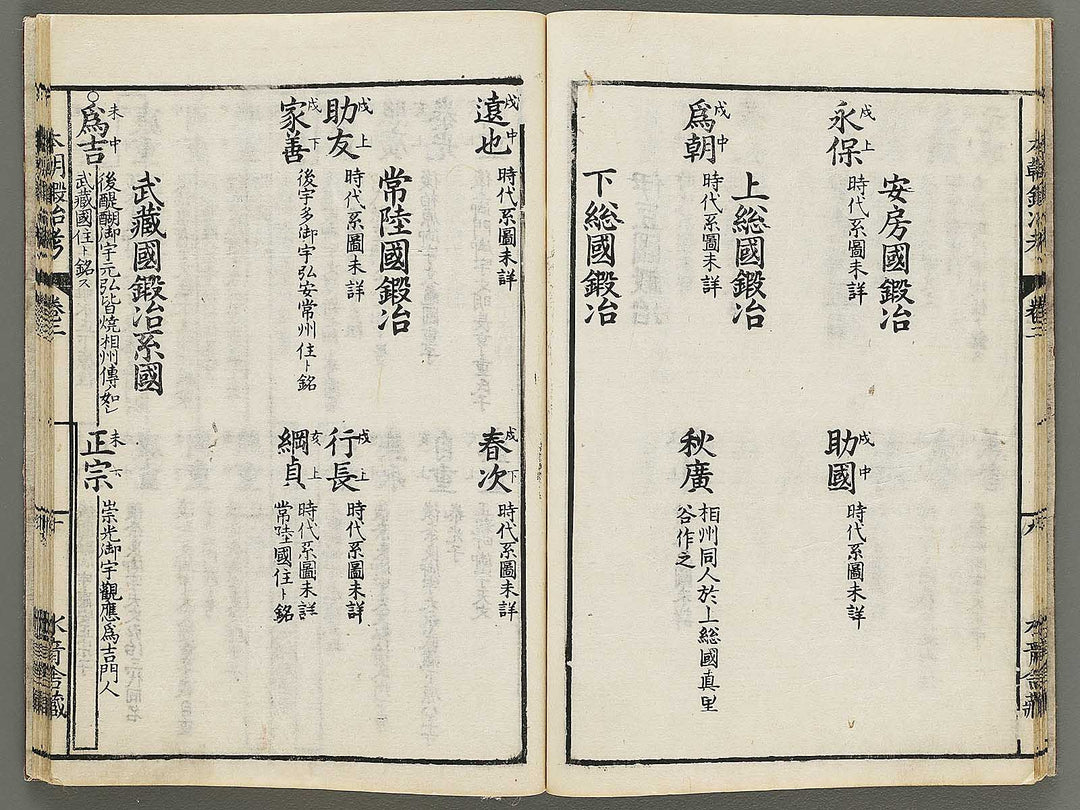 安房國鍛冶
永保 戌上 時代系圖未詳
助國 戌中 時代系圖未詳
上総國鍛冶
為朝 戌中 時代系圖未詳
秋廣 相州同人於上総國真里
谷作之
下総國鍛冶
遠也 戌中 時代系圖未詳
春次 戌下 時代系圖未詳
常陸國鍛冶
助友 戌上 時代系圖未詳
行長 戌上 時代系圖未詳
家善 戌下 後宇多御宇弘安常州住ト銘
綱貞 亥上 時代系圖未詳
常陸國住ト銘
武藏國鍛冶系圖
○為吉 未中 後醍醐御宇元弘皆焼相州傳ノ如シ
武藏國住ト銘ス
正宗 未下 崇光御宇觀應為吉門人
本朝鍛冶考 卷三 十 水音舎藏